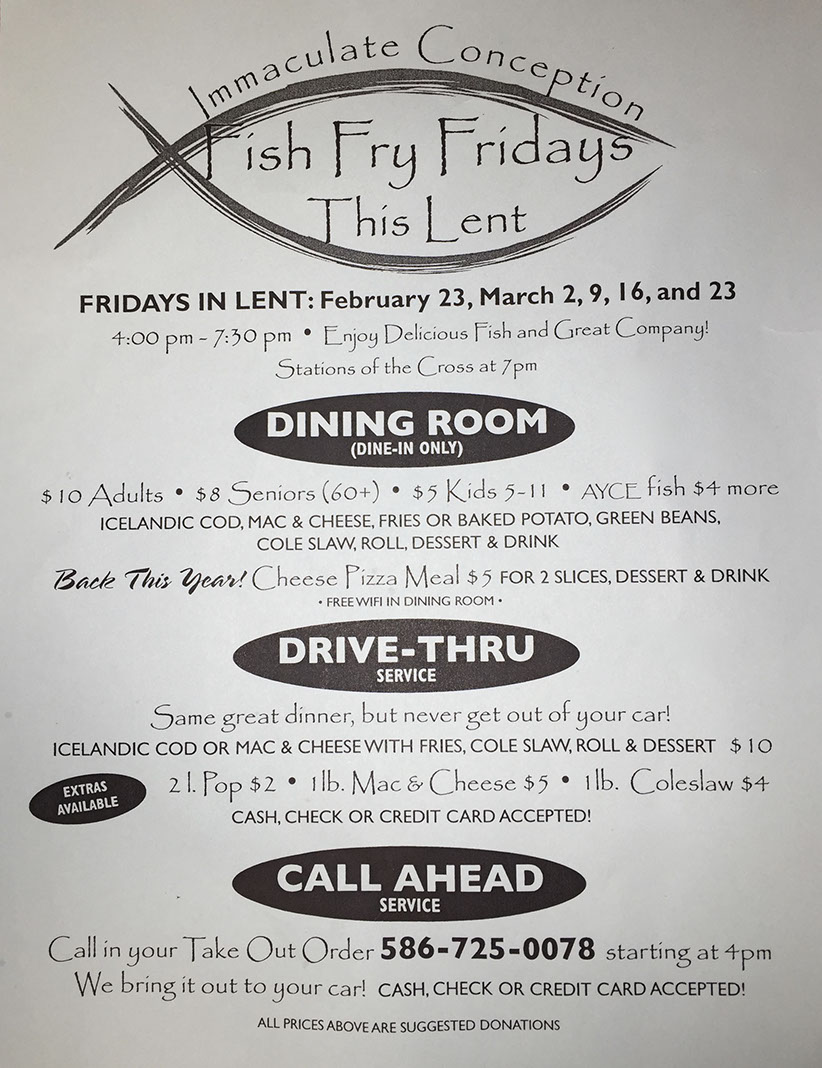 Immaculate Conception
Fish Fry Fridays
This Lent
FRIDAYS IN LENT: February 23, March 2, 9, 16, and 23
4:00 pm - 7:30 pm • Enjoy Delicious Fish and Great Company!
Stations of the Cross at 7pm
DINING ROOM
(DINE-IN ONLY)
$10 Adults • $8 Seniors (60+) • $5 Kids 5-11 • AYCE fish $4 more
ICELANDIC COD, MAC & CHEESE, FRIES OR BAKED POTATO, GREEN BEANS,
COLE SLAW, ROLL, DESSERT & DRINK
Back This Year! Cheese Pizza Meal $5 FOR 2 SLICES, DESSERT & DRINK
• FREE WIFI IN DINING ROOM •
DRIVE-THRU
SERVICE
Same great dinner, but never get out of your car!
ICELANDIC COD OR MAC & CHEESE WITH FRIES, COLE SLAW, ROLL & DESSERT $10
EXTRAS
AVAILABLE
2 l. Pop $2 • 1 lb. Mac & Cheese $5 • 1 lb. Coleslaw $4
CASH, CHECK OR CREDIT CARD ACCEPTED!
CALL AHEAD
SERVICE
Call in your Take Out Order 586-725-0078 starting at 4pm
We bring it out to your car! CASH, CHECK OR CREDIT CARD ACCEPTED!
ALL PRICES ABOVE ARE SUGGESTED DONATIONS